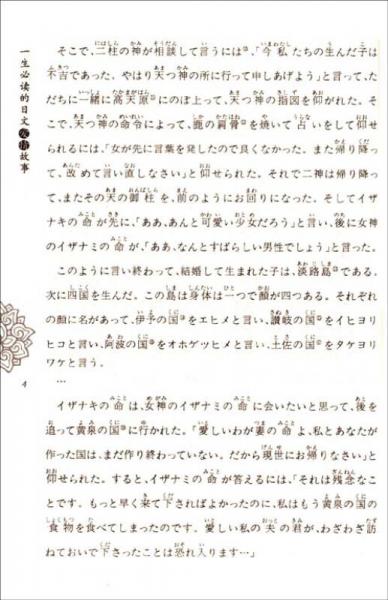 一生必读的日文爱情故事
そこで、二柱の神が相談して言うには、「今私たちの生んだ子は
不吉であった。やはり天つ神の所に行って申しあげよう」と言って、た
だちに一緒に高天原にのぼ上って、天つ神の指図を仰がれた。そ
こで、天つ神の命令によって、鹿の肩骨を焼いて占いをして仰せ
られるには、「女が先に言葉を発したので良くなかった。また帰り降っ
て、改めて言い直しなさい」と仰せられた。それで二神は帰り降っ
て、またその天の御柱を、前のようにお回りになった。そしてイザ
ナキの命が先に、「ああ、あんと可愛い少女だろう」と言い、後に女神
のイザナミの命が、「ああ、なんとすばらしい男性でしょう」と言った。
このように言い終わって、結婚して生まれた子は、淡路島である。
次に四国を生んだ。この島は身体は一つで顔が四つある。それぞれ
の顔に名があって、伊予の国をエヒメと言い、讃岐の国をイヒヨリ
ヒコと言い、阿波の国をオホゲツヒメと言い、土佐の国をタケヨリ
ワケと言う。
…
イザナキの命は、女神のイザナミの命に会いたいと思って、後を
追って黄泉の国に行かれた。「愛しいわが妻の命よ、私とあなたが
作った国は、まだ作り終わっていない。だから現世にお帰りなさい」と
仰せられた。すると、イザナミの命が答えるには、「それは残念なこ
とです。もっと早く来て下さればよかったのに、私はもう黄泉の国の
食物を食べてしまったのです。愛しい私の夫の君が、わざわざ訪
ねておいで下さったことは恐れ入ります…」
4